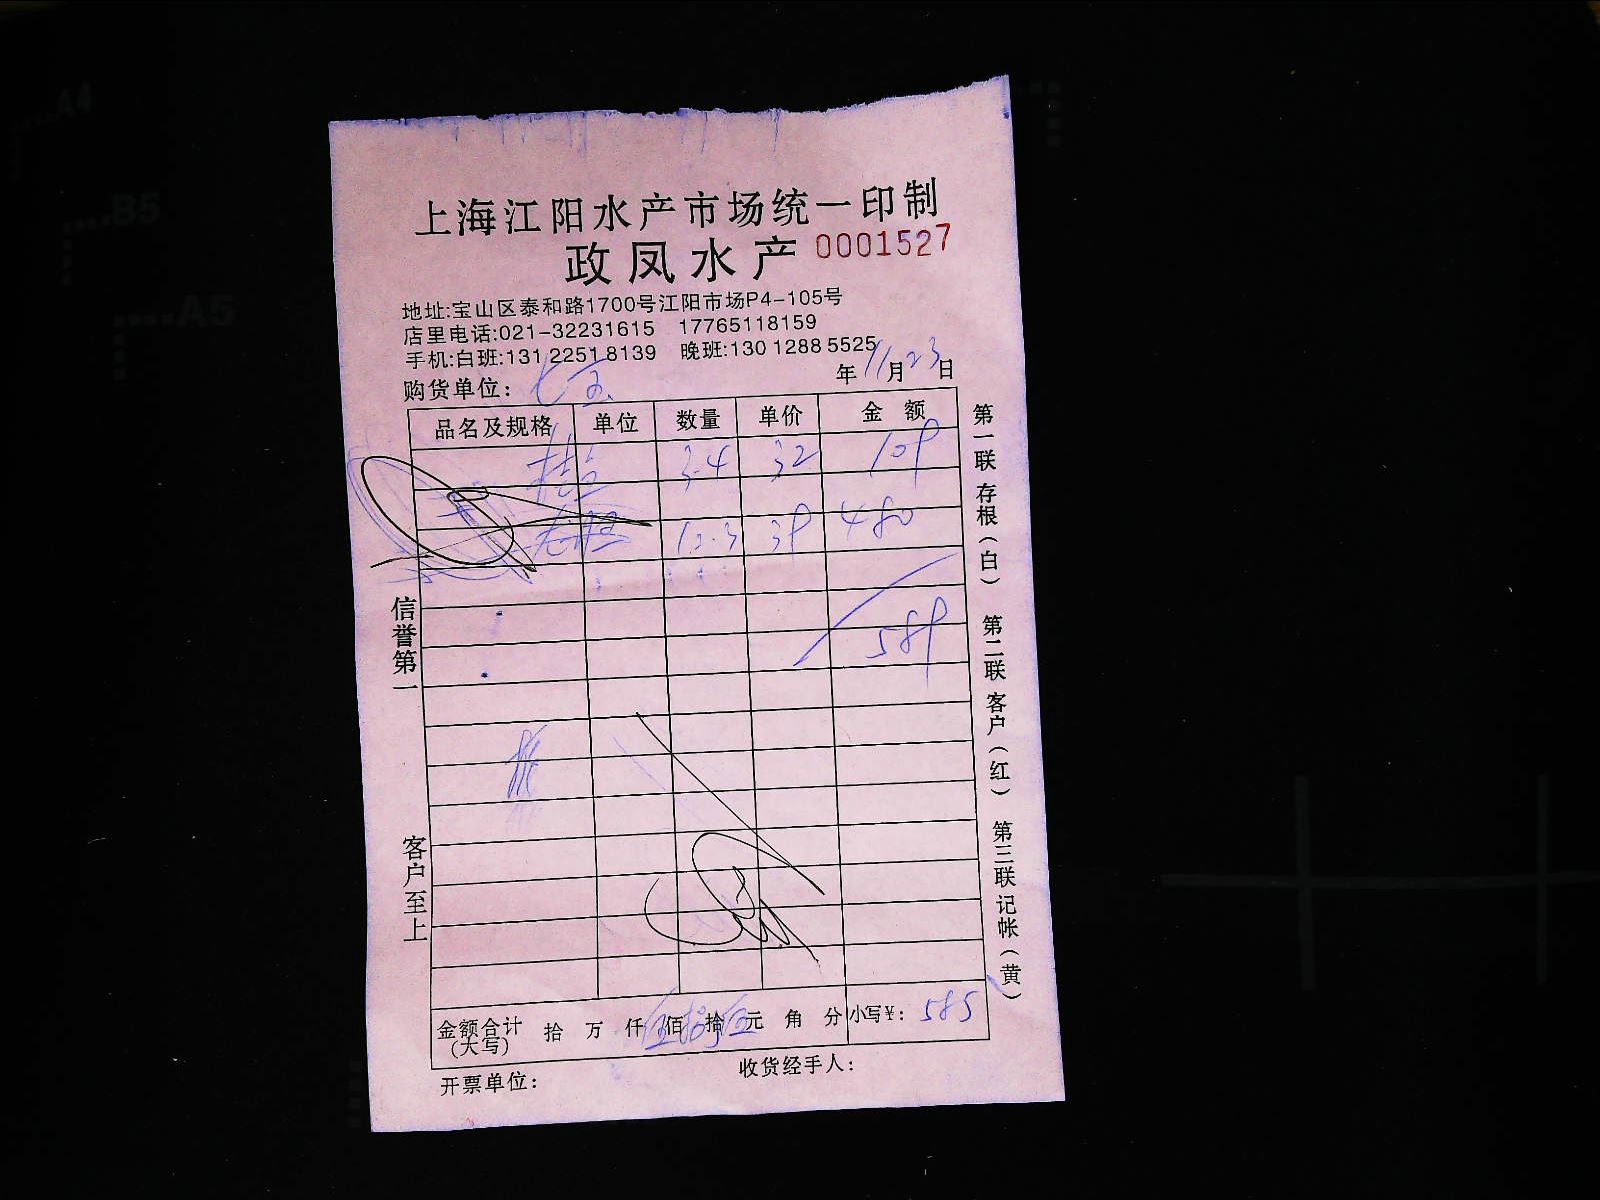 上海江阳水产市场统一印制
政凤水产 0001527
地址:宝山区泰和路1700号江阳市场P4-105号
店里电话:021-32231615 17765118159
手机:白班:131 2251 8139 晚班:130 1288 5525
购货单位: 年11月23日
品名及规格 单位 数量 单价 金额
3.4 32 109
12.3 39 480
589
金额合计(大写) 拾 万 仟 伍佰 拾 伍元 角 分 小写¥: 585
开票单位: 收货经手人:
信誉第一 客户至上
第一联存根(白) 第二联客户(红) 第三联记帐(黄)
A4
B5
A5